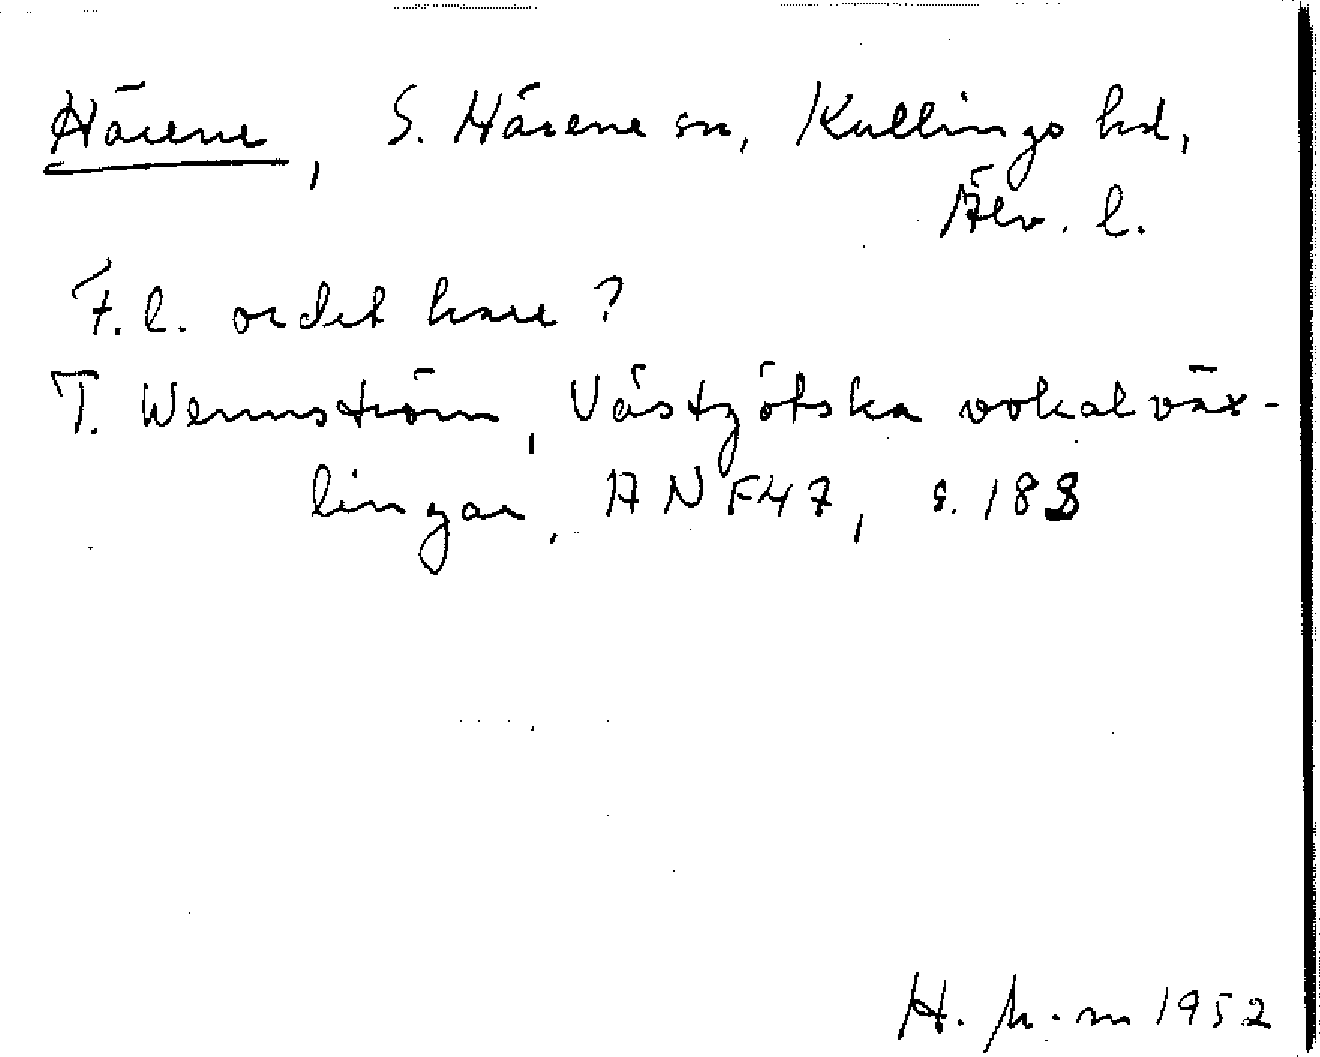 Härene, S. Härene sn, Kullings hd,
Älv. l.
F. l. ordet hare?
T. Wennström, Västgötska vokalväx-
lingar, ANF47, s. 188
H. 1952